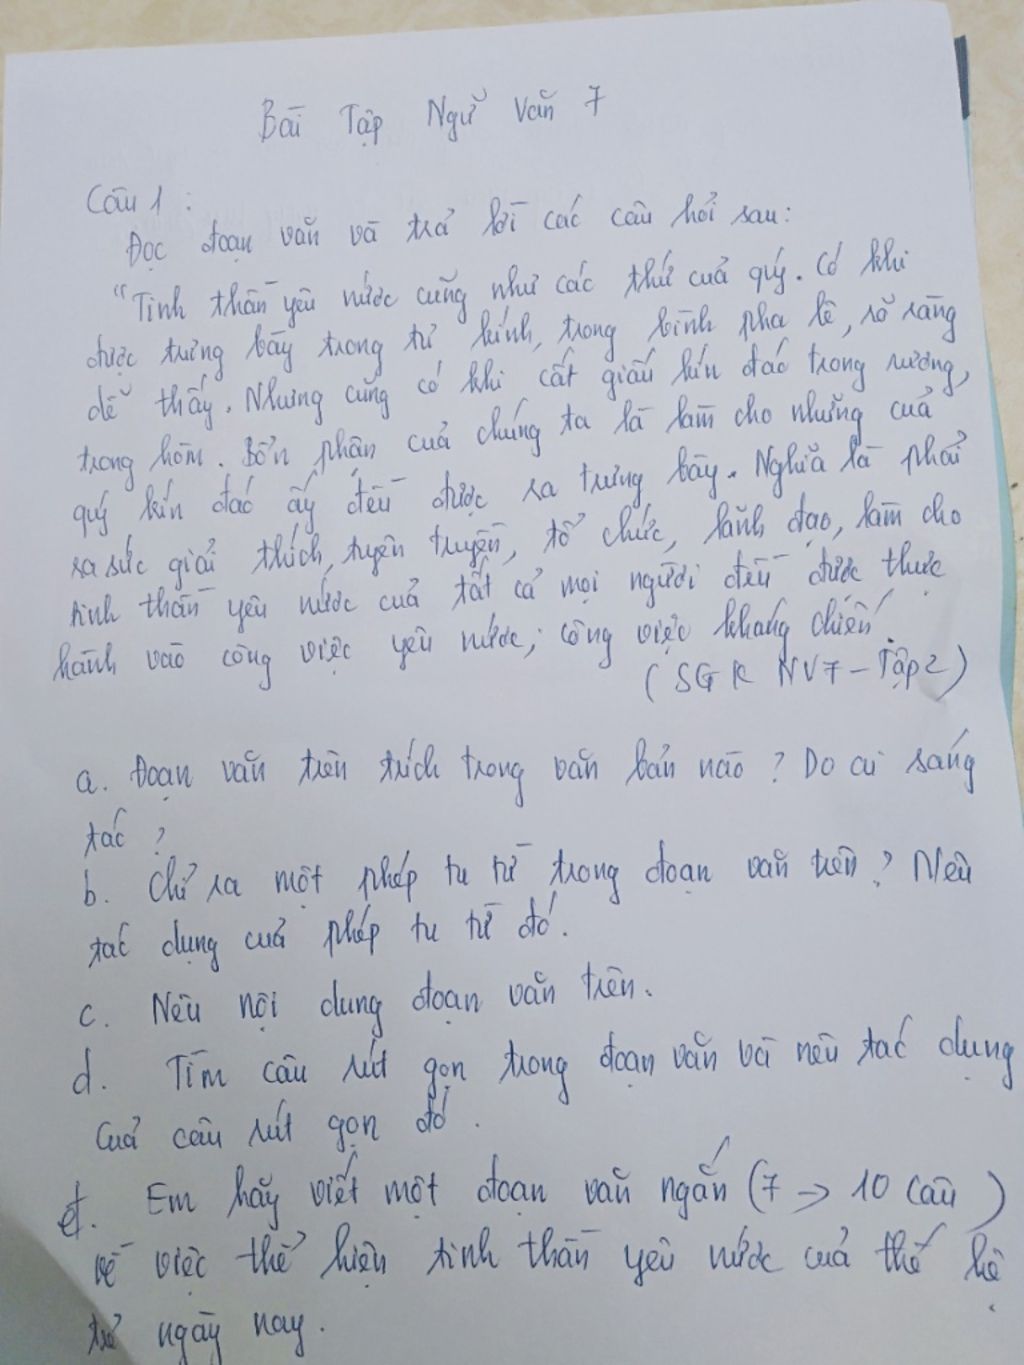 Bài Tập Ngữ Văn 7
Câu 1 :
Đọc đoạn văn và trả lời các câu hỏi sau:
"Tinh thần yêu nước cũng như các thứ của quý. Có khi
được trưng bày trong tủ kính, trong bình pha lê, rõ ràng
dễ thấy. Nhưng cũng có khi cất giấu kín đáo trong rương,
trong hòm. Bổn phận của chúng ta là làm cho những của
quý kín đáo ấy đều được ra trưng bày. Nghĩa là phải
ra sức giải thích, tuyên truyền, tổ chức, lãnh đạo, làm cho
tinh thần yêu nước của tất cả mọi người đều được thực
hành vào công việc yêu nước, công việc kháng chiến.
(SGK NV7 - Tập 2)
a. Đoạn văn trên trích trong văn bản nào ? Do ai sáng
tác ?
b. Chỉ ra một phép tu từ trong đoạn văn trên ? Nêu
tác dụng của phép tu từ đó.
c. Nêu nội dung đoạn văn trên.
d. Tìm câu rút gọn trong đoạn văn và nêu tác dụng
của câu rút gọn đó .
đ. Em hãy viết một đoạn văn ngắn (7 -> 10 câu )
về việc thể hiện tinh thần yêu nước của thế hệ
trẻ ngày nay.